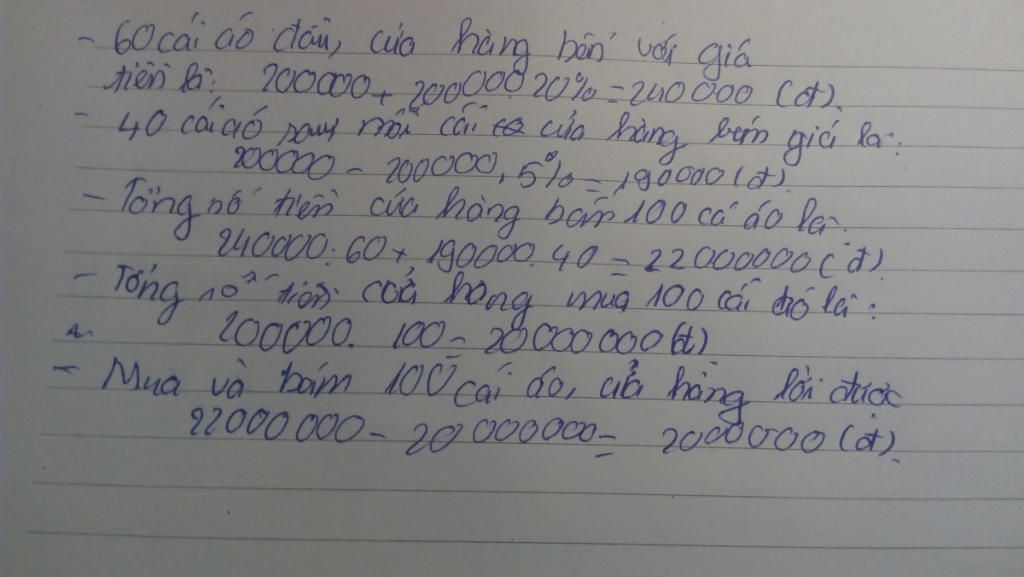 - 60 cái áo đầu, cửa hàng bán với giá
tiền là: 200000 + 200000.20% = 240000 (đ).
- 40 cái áo sau mỗi cái cửa hàng bán giá là:
200000 - 200000.5% = 190000 (đ).
- Tổng số tiền cửa hàng bán 100 cá áo là:
240000.60 + 190000.40 = 22000000 (đ).
- Tổng số tiền cửa hàng mua 100 cái đó là:
200000. 100 = 20000000 (đ)
- Mua và bán 100 cái áo, cửa hàng lời được
22000000 - 20000000 = 2000000 (đ).